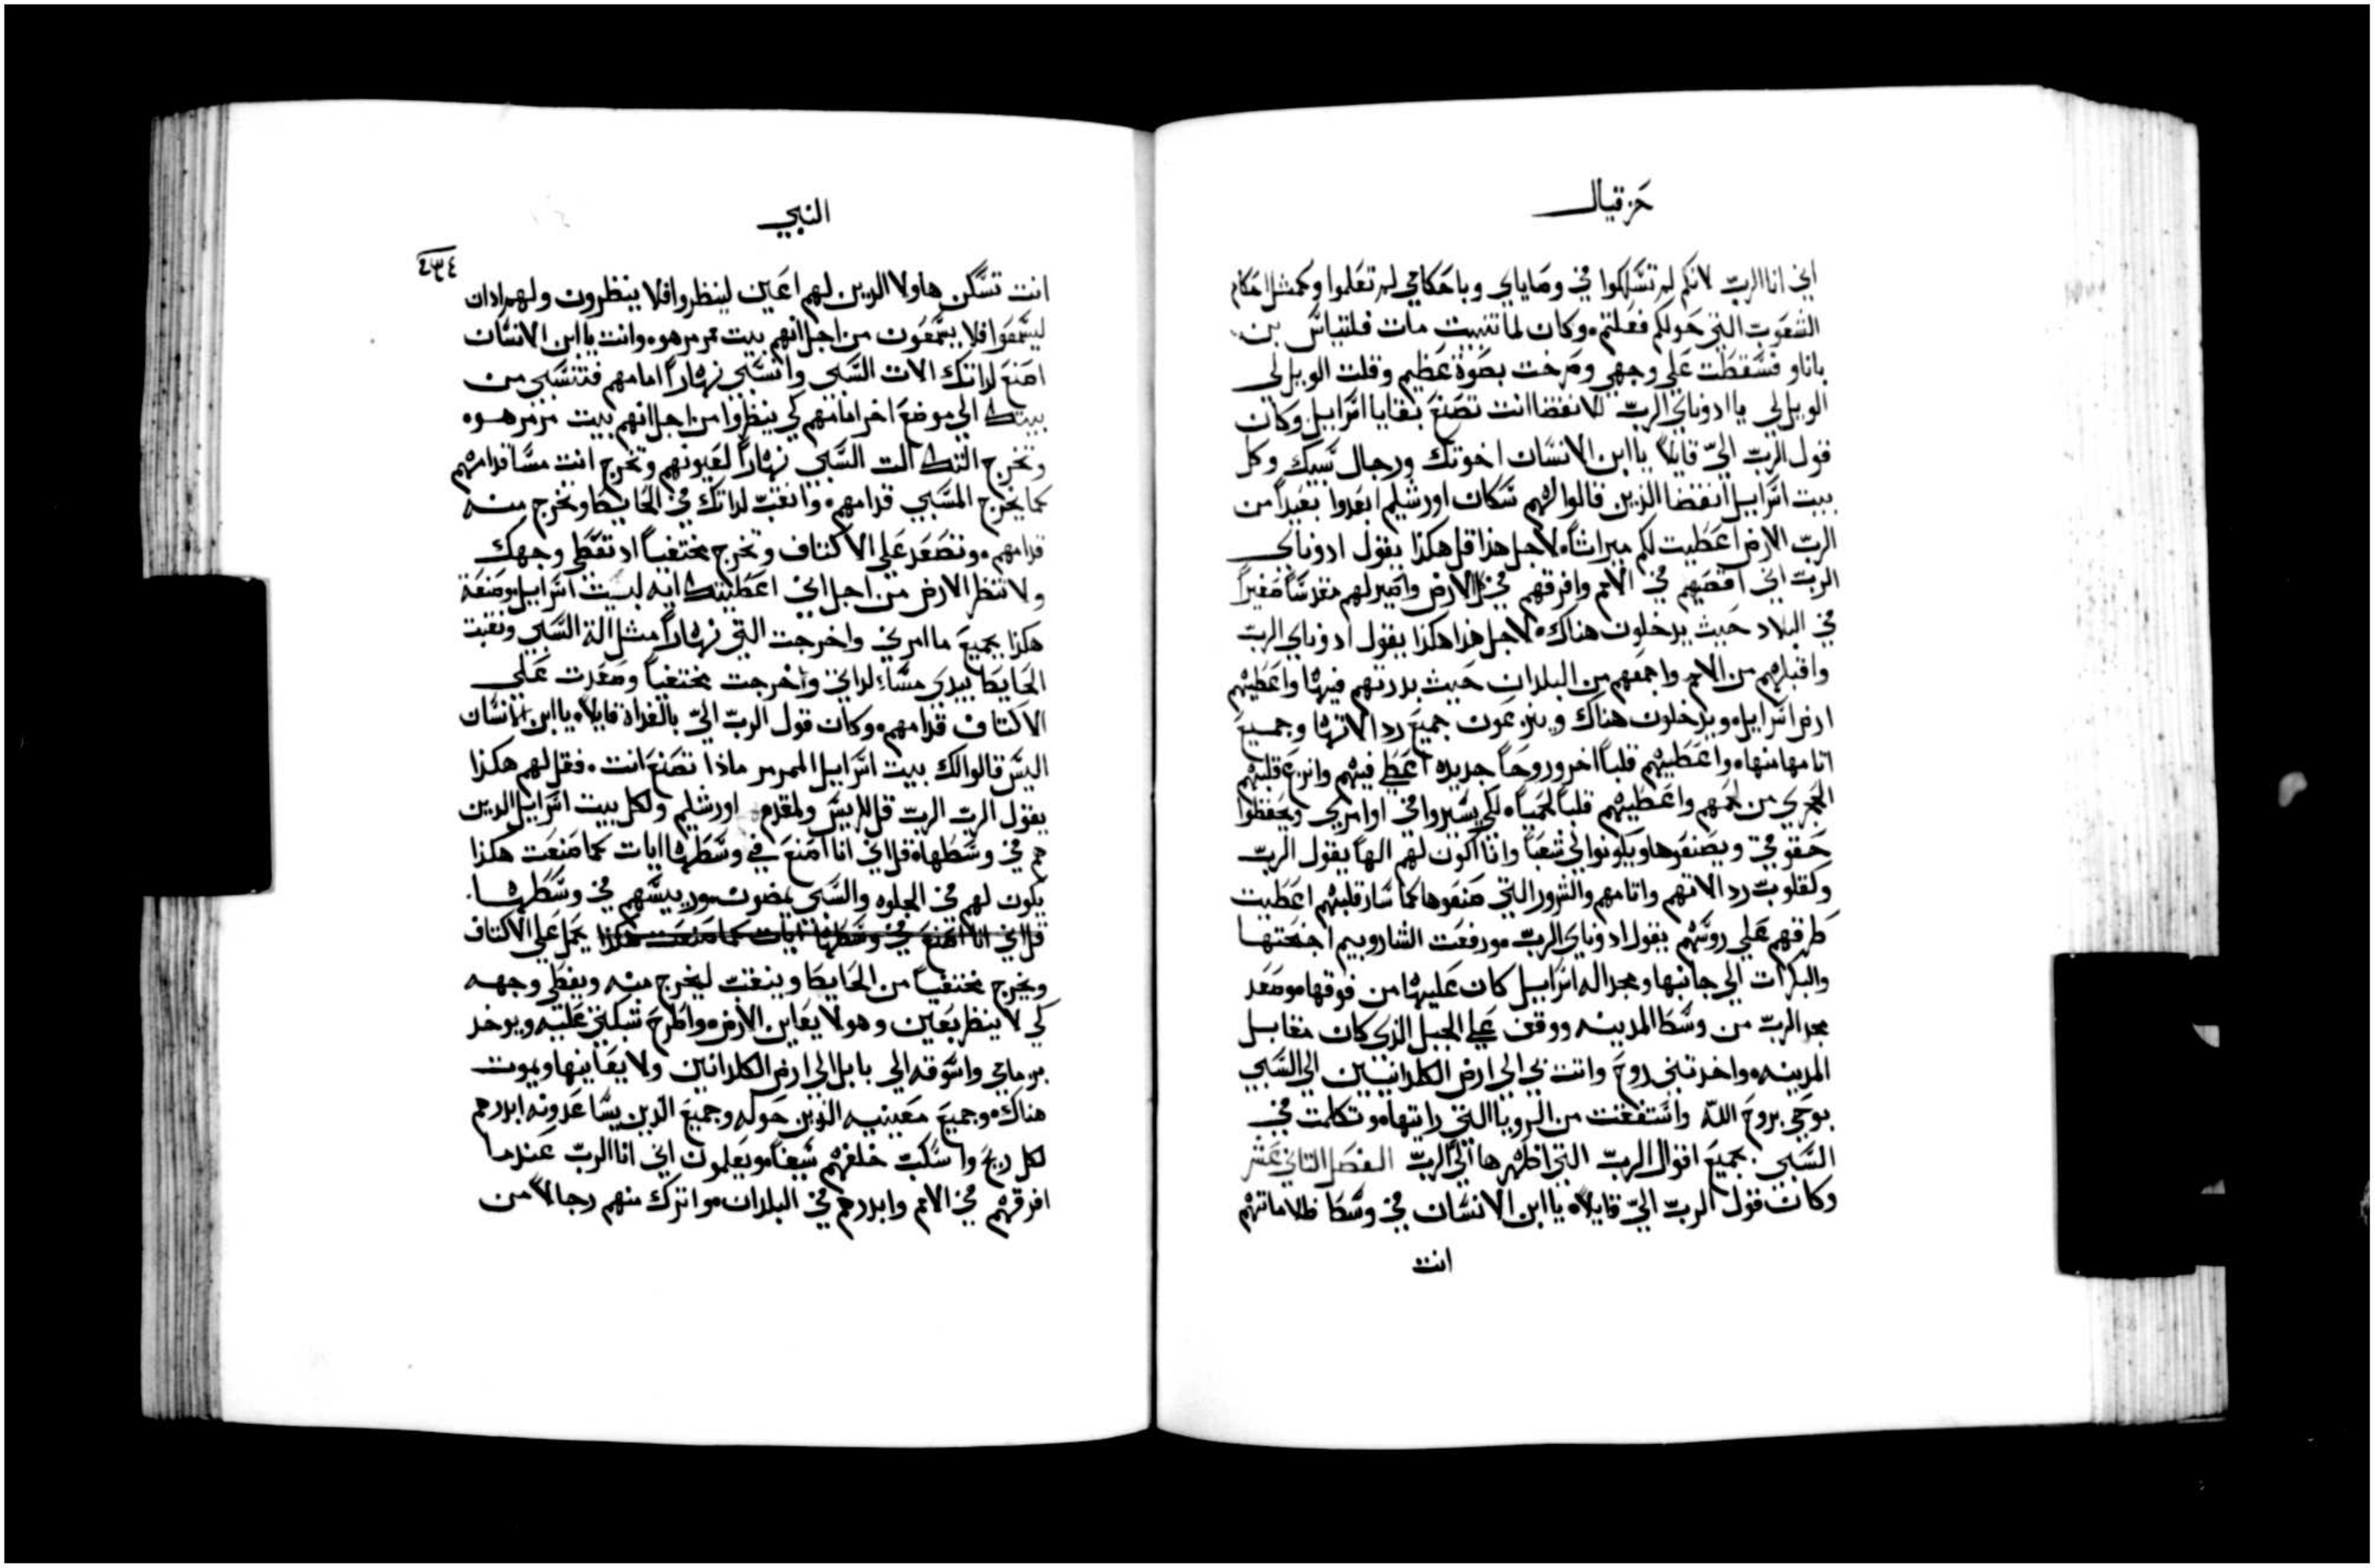 حزقيال
اني انا الرب لانكم لم تسلكوا في وصاياي وباحكامي لم تعملوا وكمثل احكام
الشعوب التي حولكم فعلتم وكان لما تنبيت مات فلتياس بن
باناو فسقطت علي وجهي وصرخت بصوة عظيم وقلت الويل لي
الويل لي يا ادوناي الرب للانقضا انت تصنع بقايا اسرابيل وكان
قول الرب اليّ قايلاً يا ابن الانسان اخوتك ورجال سبيك وكل
بيت اسرابيل انقضا الذين قالوا لهم سكان اورشليم ابعدوا بعيداً من
الرب الارض اعطيت لكم ميراثاً لاجل هذا قل هكذا يقول ادوناي
الرب اني اقصيهم في الامم وافرقهم في كل الارض واصير لهم مقدساً صغيراً
في البلاد حيث يدخلون هناك لاجل هذا هكذا يقول ادوناي الرب
واقبلهم من الامم واجمعهم من البلدان حيث بددتهم فيها واعطيهم
ارض اسرابيل ويدخلون هناك وينزعون جميع رد الاتها وجميع
اتامها منها واعطيهم قلباً اخر وروحاً جديده اعطي فيهم وانزع قلبهم
الحجري من لحمهم واعطيهم قلباً لحمياً لكي يسيروا في اوامري ويحفظوا
حقوقي ويصنعوها ويكونوا لي شعباً وانا اكون لهم الهاً يقول الرب
وكقلوب رد الاتهم واتامهم والشرور التي صنعوها كما سار قلبهم اعطيت
طرقهم علي روسهم يقول ادوناي الرب ورفعت الشاروبيم اجنحتها
والبكرات الي جانبها ومجد اله اسرابيل كان عليها من فوقها وصعد
مجد الرب من وسط المدينه ووقف علي الجبل الذي كان مقابل
المدينه واخدتني روح واتت بي الي ارض الكلدانيين الي السبي
بوحي بروح الله واستفقت من الرويا التي رايتها وتكلمت في
السبي بجميع اقوال الرب التي اظهرها اليّ الرب الفصل الثاني عشر
وكان قول الرب اليّ قايلاً يا ابن الانسان في وسط ظلاماتهم
انت
النبي
٤٣٤
انت تسكن هاولا الدين لهم اعين لينظروا فلا ينظرون ولهم ادان
ليسمعوا فلا يسمعون من اجل انهم بيت تمرمر هو وانت يا ابن الانسان
اصنع لداتك الات السبي وانسبي نهاراً امامهم فتنسبي من
بيتك الي موضع اخر امامهم كي ينظروا من اجل انهم بيت مرمر هو
وتخرج التك الت السبي نهاراً لعيونهم وتخرج انت مسا قدامهم
كما يخرج المسبي قدامهم وانقب لداتك في الحايط وتخرج منه
قدامهم وتصعد علي الاكتاف وتخرج مختفياً اد تغطي وجهك
ولا تنظر الارض من اجل اني اعطيتك ايه لبيت اسرابيل وصنعة
هكذا بجميع ما امرني واخرجت التي نهاراً مثل الة السبي ونقبت
الحايط بيدي مساً لداتي واخرجت مختفياً وصعدت علي
الاكتاف قدامهم وكان قول الرب اليّ بالغداة قايلاً يا ابن الانسان
اليس قالوا لك بيت اسرابيل الممرمر ماذا تصنع انت فقل لهم هكذا
يقول الرب الرب قل للريس ولمقدم اورشليم ولكل بيت اسرابيل الدين
هم في وسطها قل اني انا اصنع في وسطها ايات كما صنعت هكذا
يكون لهم في الجلوه والسبي يمضون وريسهم في وسطها
قل اني انا اصنع في وسطها ايات كما صنعت هكذا يحمل علي الاكتاف
ويخرج مختفياً من الحايط وينقب ليخرج منه ويغطي وجهه
كي لا ينظر بعين وهو لا يعاين الارض واطرح شبكتي عليه ويوخد
واسوقه الي بابل الي ارض الكلدانين ولا يعاينها ويموت
هناك وجميع معينيه الذين حوله وجميع الذين يساعدونه ابددهم
لكل ريح واسكب خلفهم سيفاً ويعلمون اني انا الرب عندما
افرقهم في الامم وابددهم في البلدان واترك منهم رجالاً من